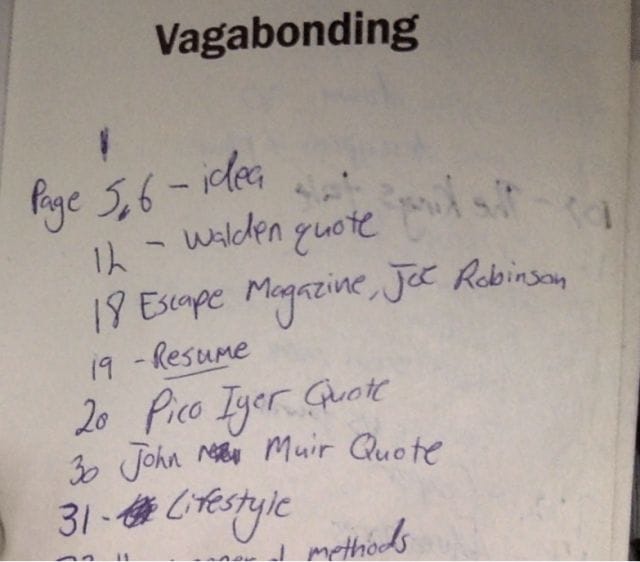 Vagabonding
Page 5,6 - idea
12 - Walden quote
18 Escape Magazine, Joe Robinson
19 - Resume
20 Pico Iyer Quote
30 John Muir Quote
31 - Lifestyle
methods